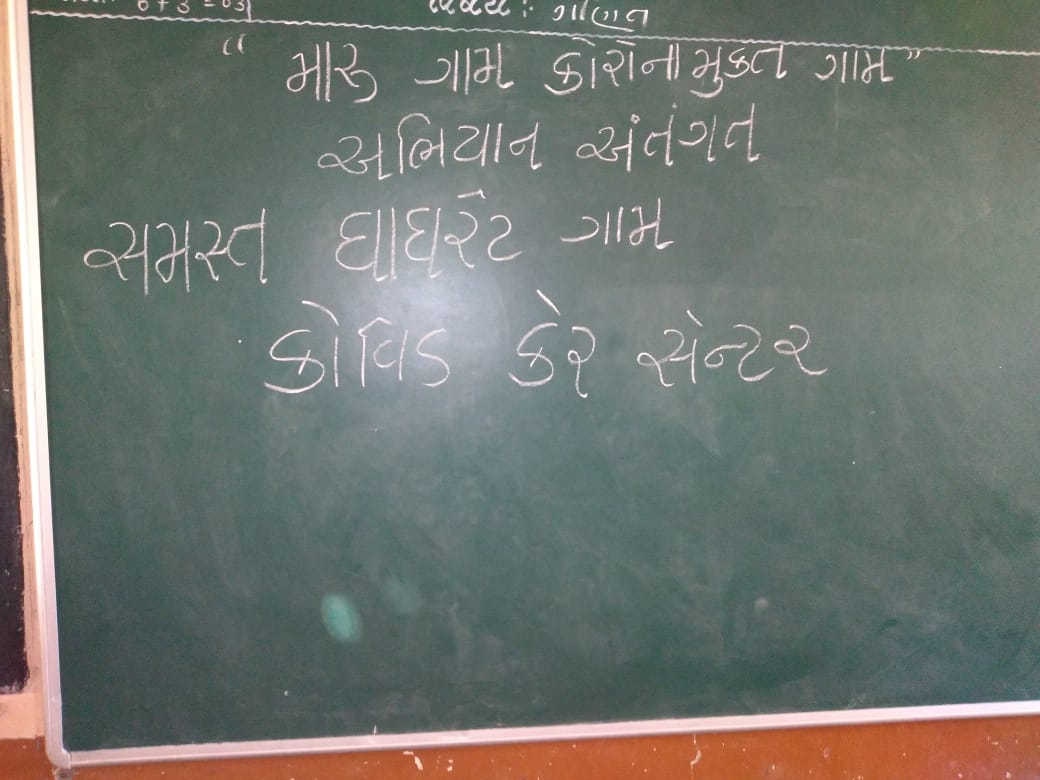 6 + 3 = 03
વિષય : ગણિત
“ મારુ ગામ કોરોના મુકત ગામ ”
અભિયાન અંતંગત
સમસ્ત ઘાઘરેટ ગામ
કોવિડ કેર સેન્ટર